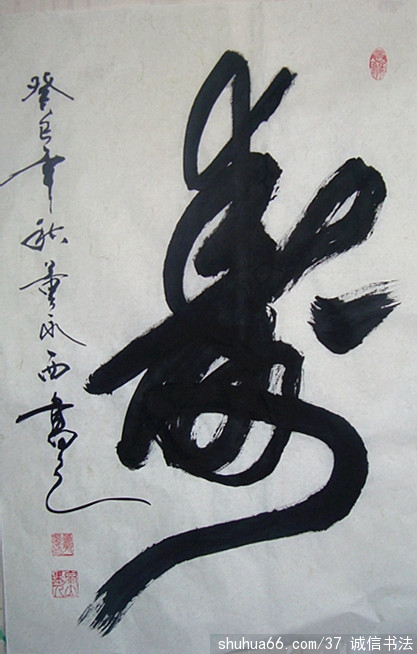 寿
癸巳年秋董永西书之
shuhua66.com/37 诚信书法